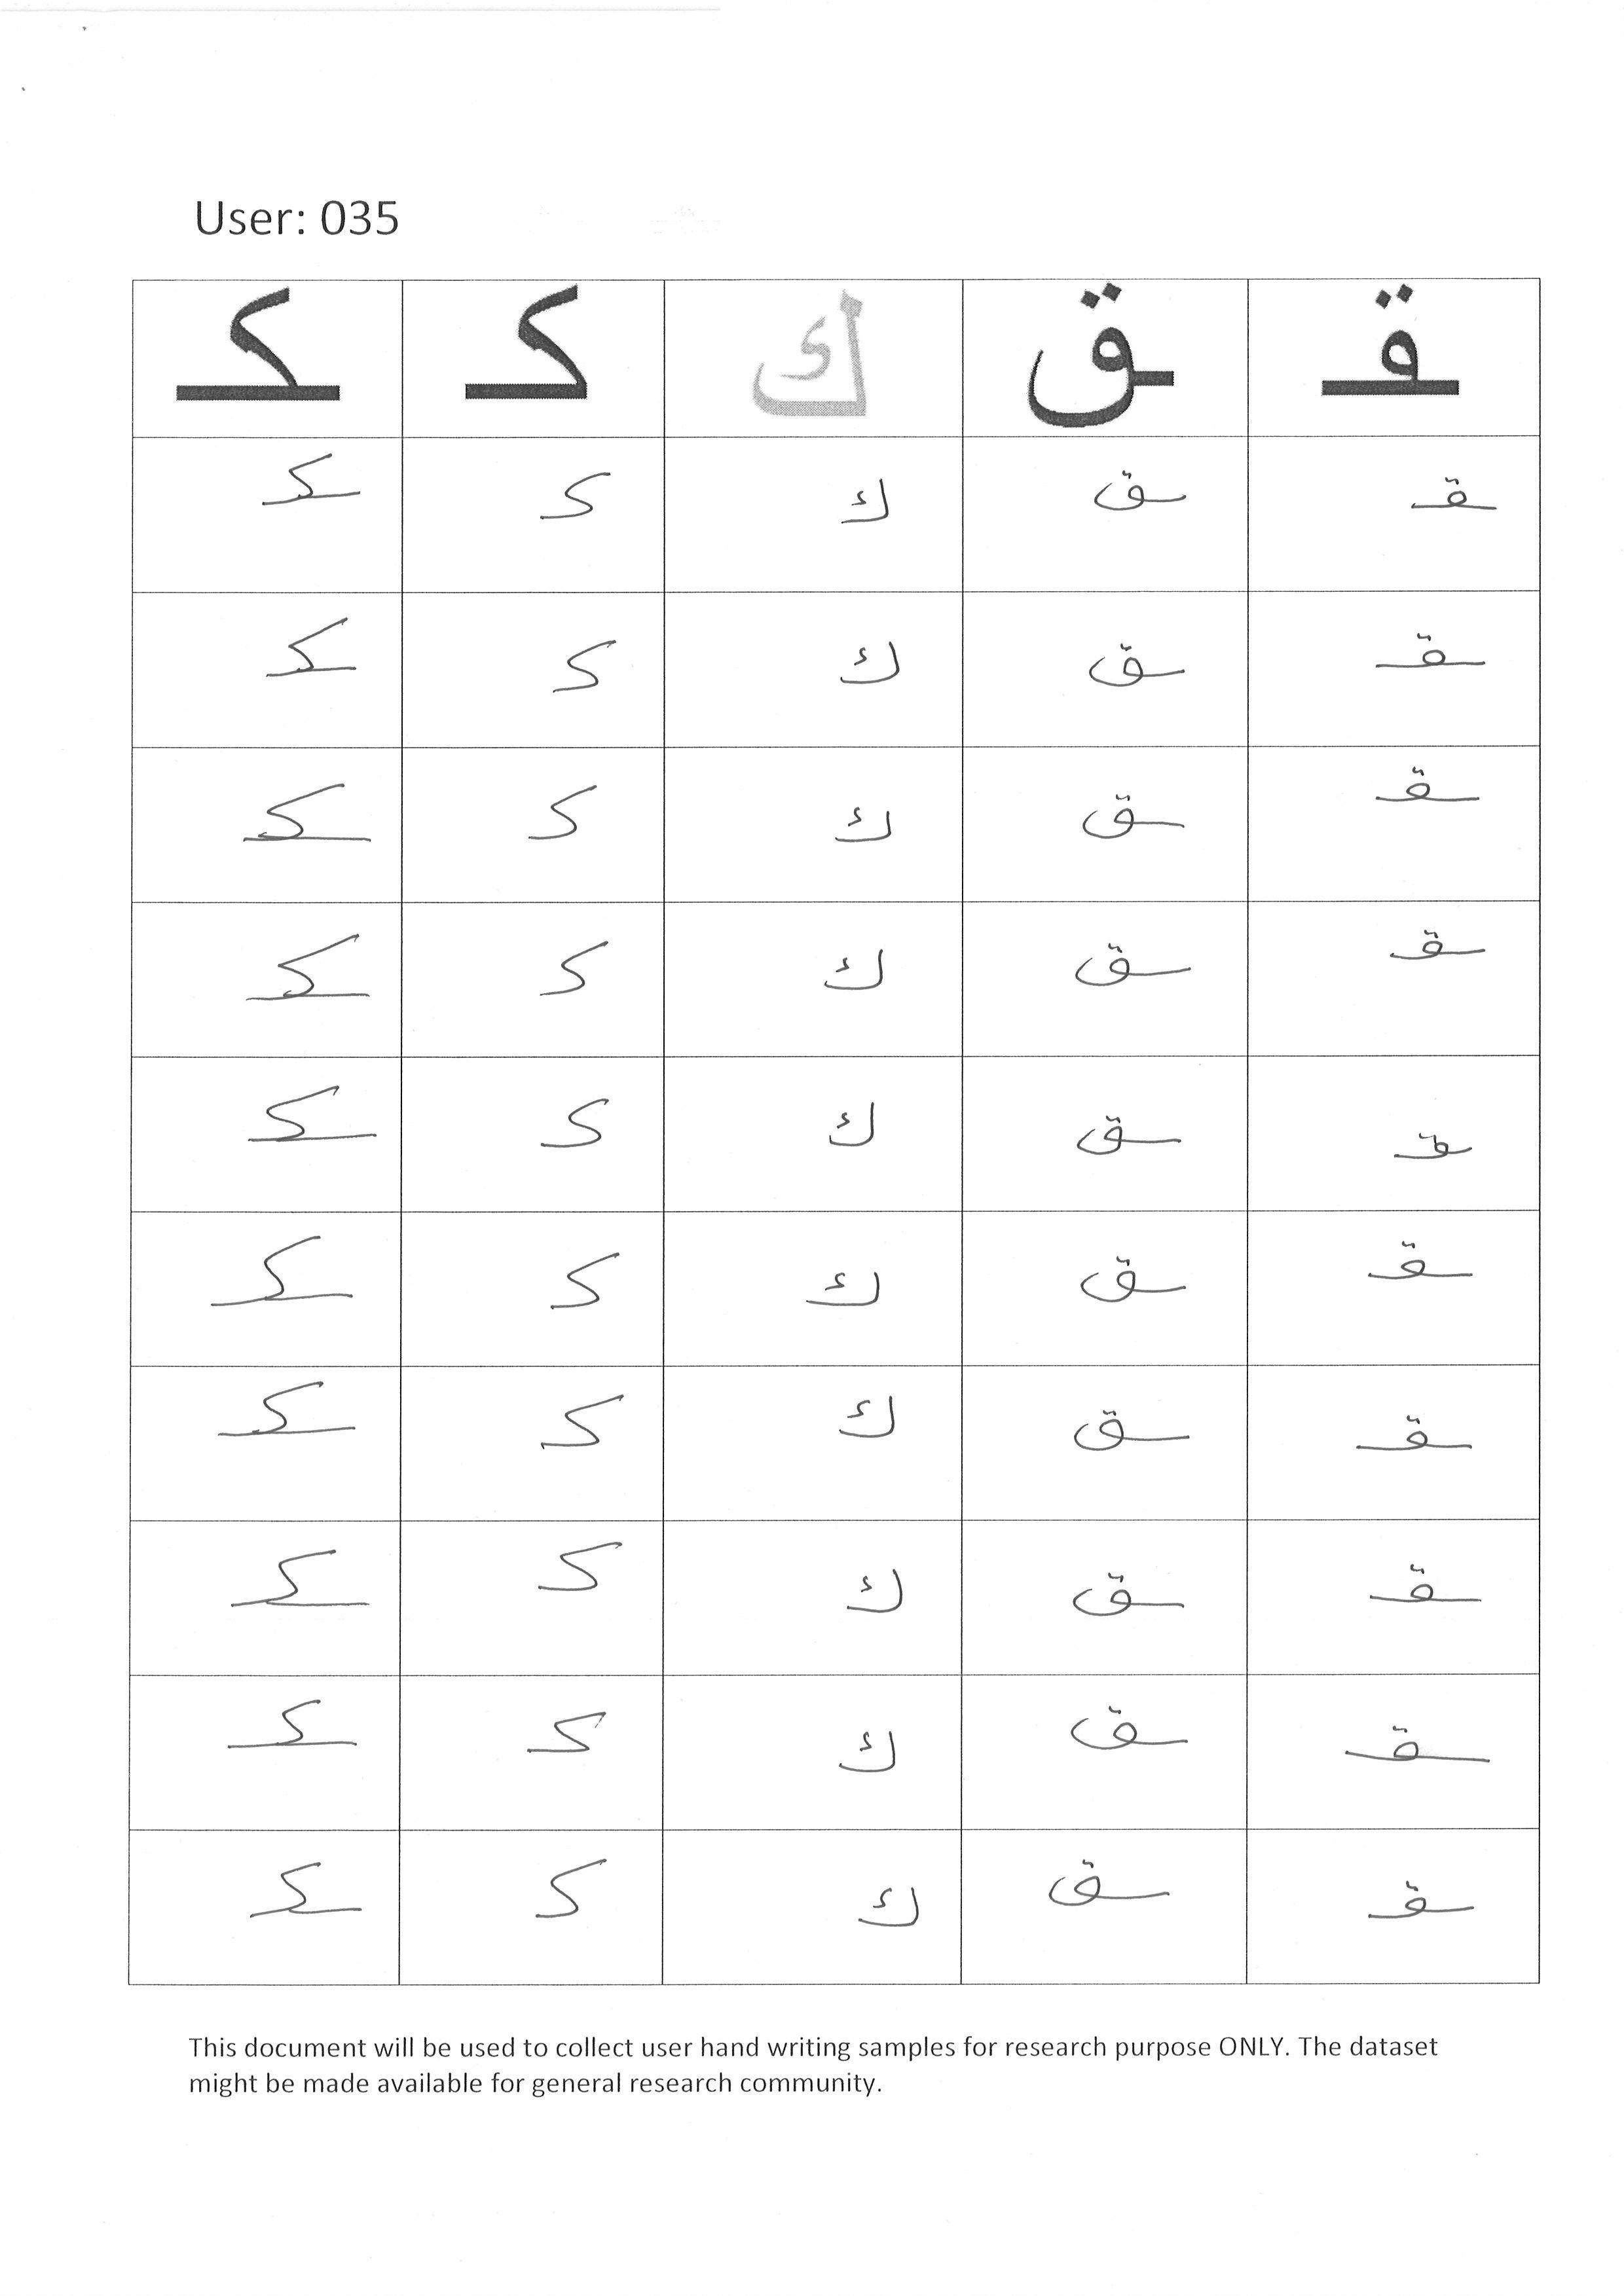 User: 035
ـقـ ـق ك كـ ـكـ
ـقـ ـق ك كـ ـكـ
ـقـ ـق ك كـ ـكـ
ـقـ ـق ك كـ ـكـ
ـقـ ـق ك كـ ـكـ
ـقـ ـق ك كـ ـكـ
ـقـ ـق ك كـ ـكـ
ـقـ ـق ك كـ ـكـ
ـقـ ـق ك كـ ـكـ
ـقـ ـق ك كـ ـكـ
ـقـ ـق ك كـ ـكـ
This document will be used to collect user hand writing samples for research purpose ONLY. The dataset
might be made available for general research community.